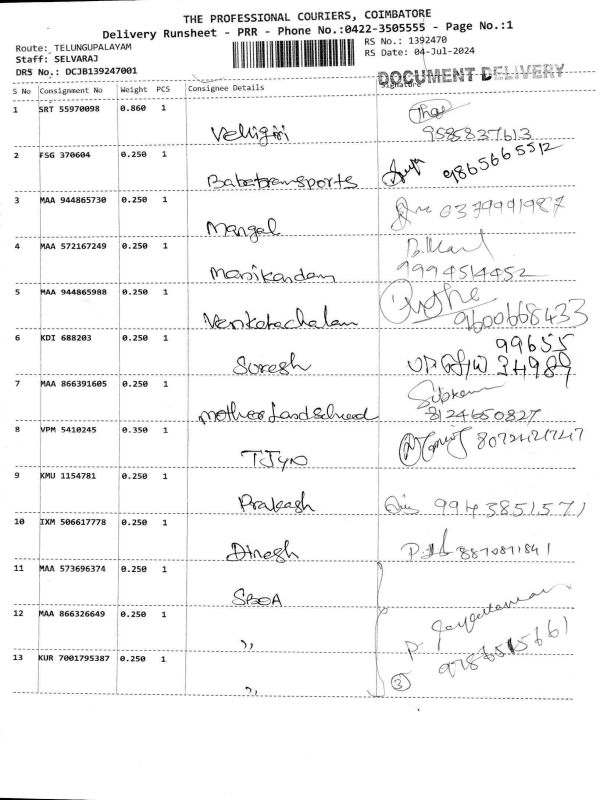 THE PROFESSIONAL COURIERS, COIMBATORE
Delivery Runsheet - PRR - Phone No.:0422-3505555 - Page No.:1
Route: TELUNGUPALAYAM
Staff: SELVARAJ
DRS No.: DCJB139247001
RS No.: 1392470
RS Date: 04-Jul-2024
DOCUMENT DELIVERY
S No Consignment No Weight PCS Consignee Details Signature
1 SRT 55970098 0.860 1
9585837613
2 FSG 370604 0.250 1 Babatransports 9865665512
3 MAA 944865730 0.250 1 Mangal
4 MAA 572167249 0.250 1 Manikandam 9994514452
5 MAA 944865988 0.250 1 Venkatachalam 9600668433
6 KDI 688203 0.250 1 Suresh 99655
34989
7 MAA 866391605 0.250 1 8124650827
8 VPM 5410245 0.350 1
9 KMU 1154781 0.250 1 Prakash 9943851571
10 IXM 506617778 0.250 1 Dinesh 8870871841
11 MAA 573696374 0.250 1 SBOA
12 MAA 866326649 0.250 1 ,,
13 KUR 7001795387 0.250 1 ,, 3